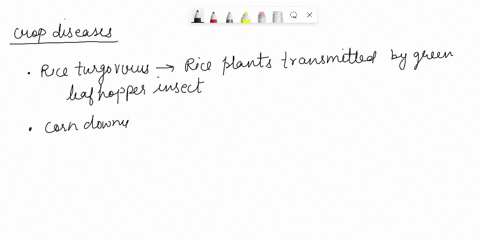 crop diseases
• Rice turgovrous → Rice plants transmitted by green
leafhopper insect
• corn downe